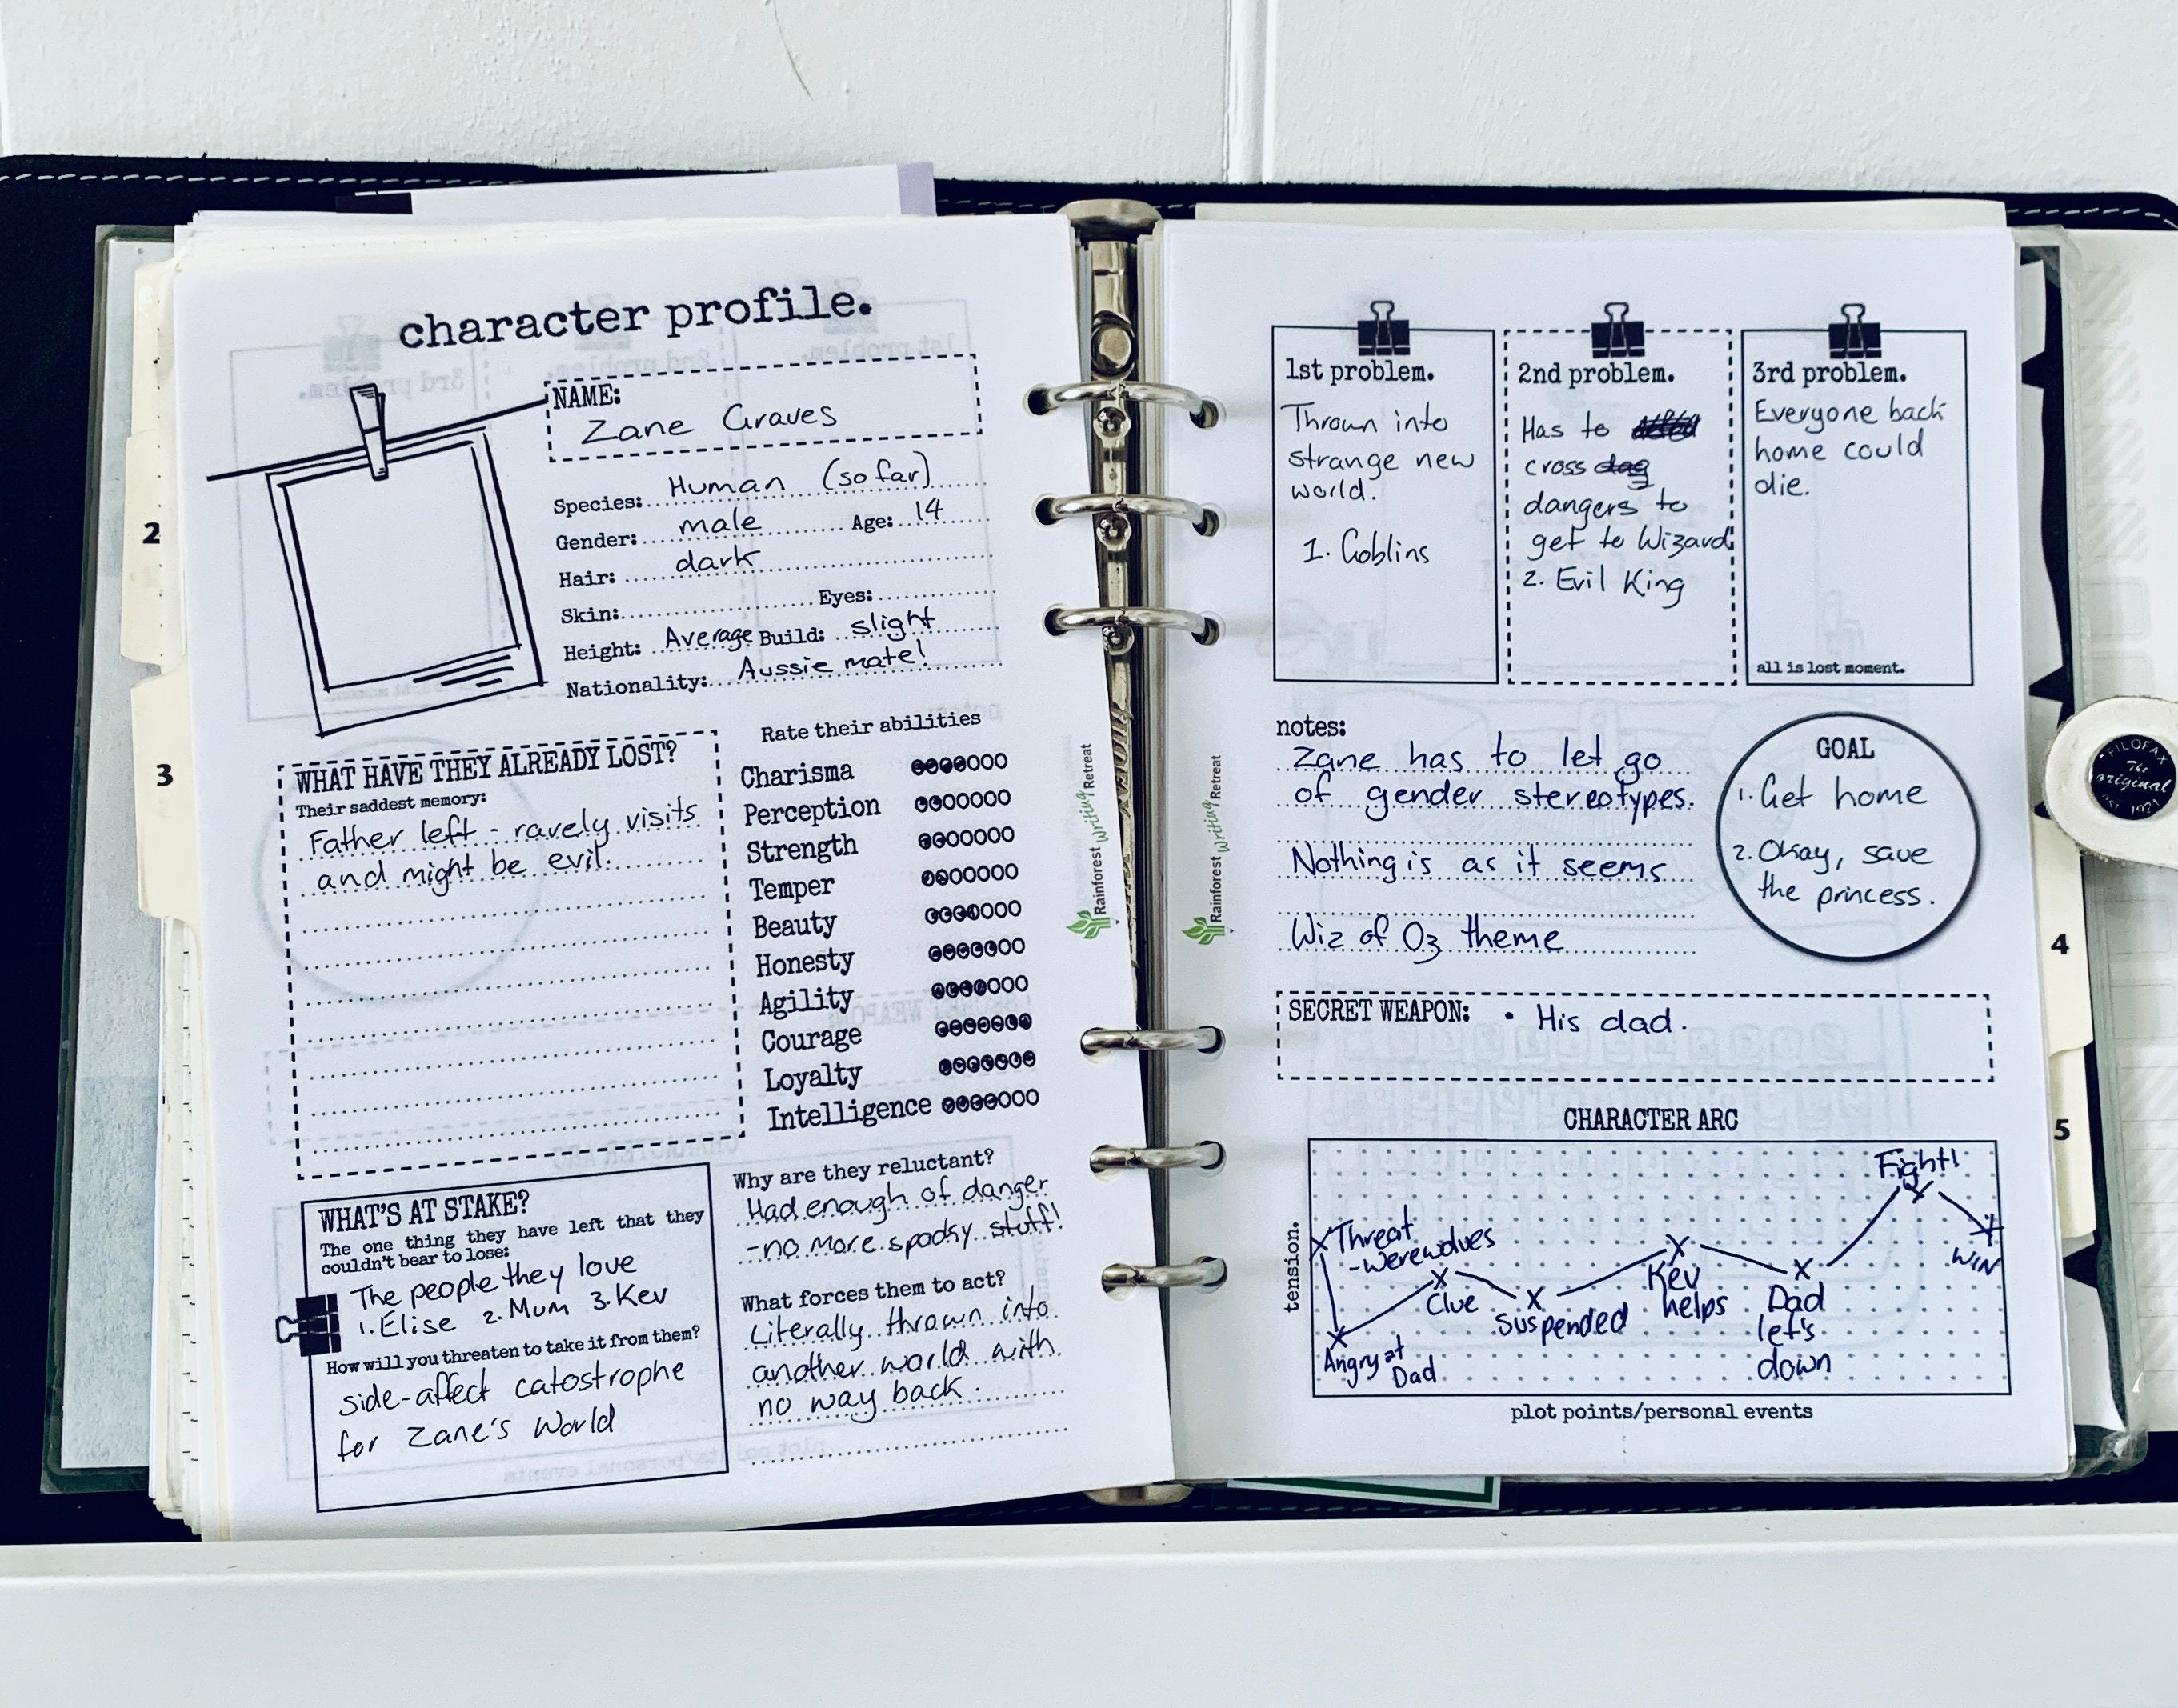 character profile.
NAME:
Zane Graves
Species: Human (so far)
Gender: male Age: 14
Hair: dark
Skin: Eyes:
Height: Average Build: slight
Nationality: Aussie mate!
WHAT HAVE THEY ALREADY LOST?
Their saddest memory:
Father left - rarely visits
and might be evil.
Rate their abilities
Charisma
Perception
Strength
Temper
Beauty
Honesty
Agility
Courage
Loyalty
Intelligence
WHAT'S AT STAKE?
The one thing they have left that they
couldn't bear to lose:
The people they love
1. Elise 2. Mum 3. Kev
How will you threaten to take it from them?
side-affect catostrophe
for Zane's World
Why are they reluctant?
Had enough of danger
- no more spooky stuff!
What forces them to act?
Literally thrown into
another world with
no way back.
Rainforest Writing Retreat
2
3
1st problem.
Thrown into
strange new
world.
1. Goblins
2nd problem.
Has to
cross dag
dangers to
get to Wizard
2. Evil King
3rd problem.
Everyone back
home could
die.
all is lost moment.
notes:
Zane has to let go
of gender stereotypes.
Nothing is as it seems
Wiz of Oz theme
GOAL
1. Get home
2. Okay, save
the princess.
SECRET WEAPON: • His dad.
CHARACTER ARC
tension.
Threat
- werewolves
Angry at
Dad
Clue
Suspended
Kev
helps
Dad
let's
down
Fight!
WIN
plot points/personal events
Rainforest Writing Retreat
4
5
FILOFAX
The
original
EST 1921